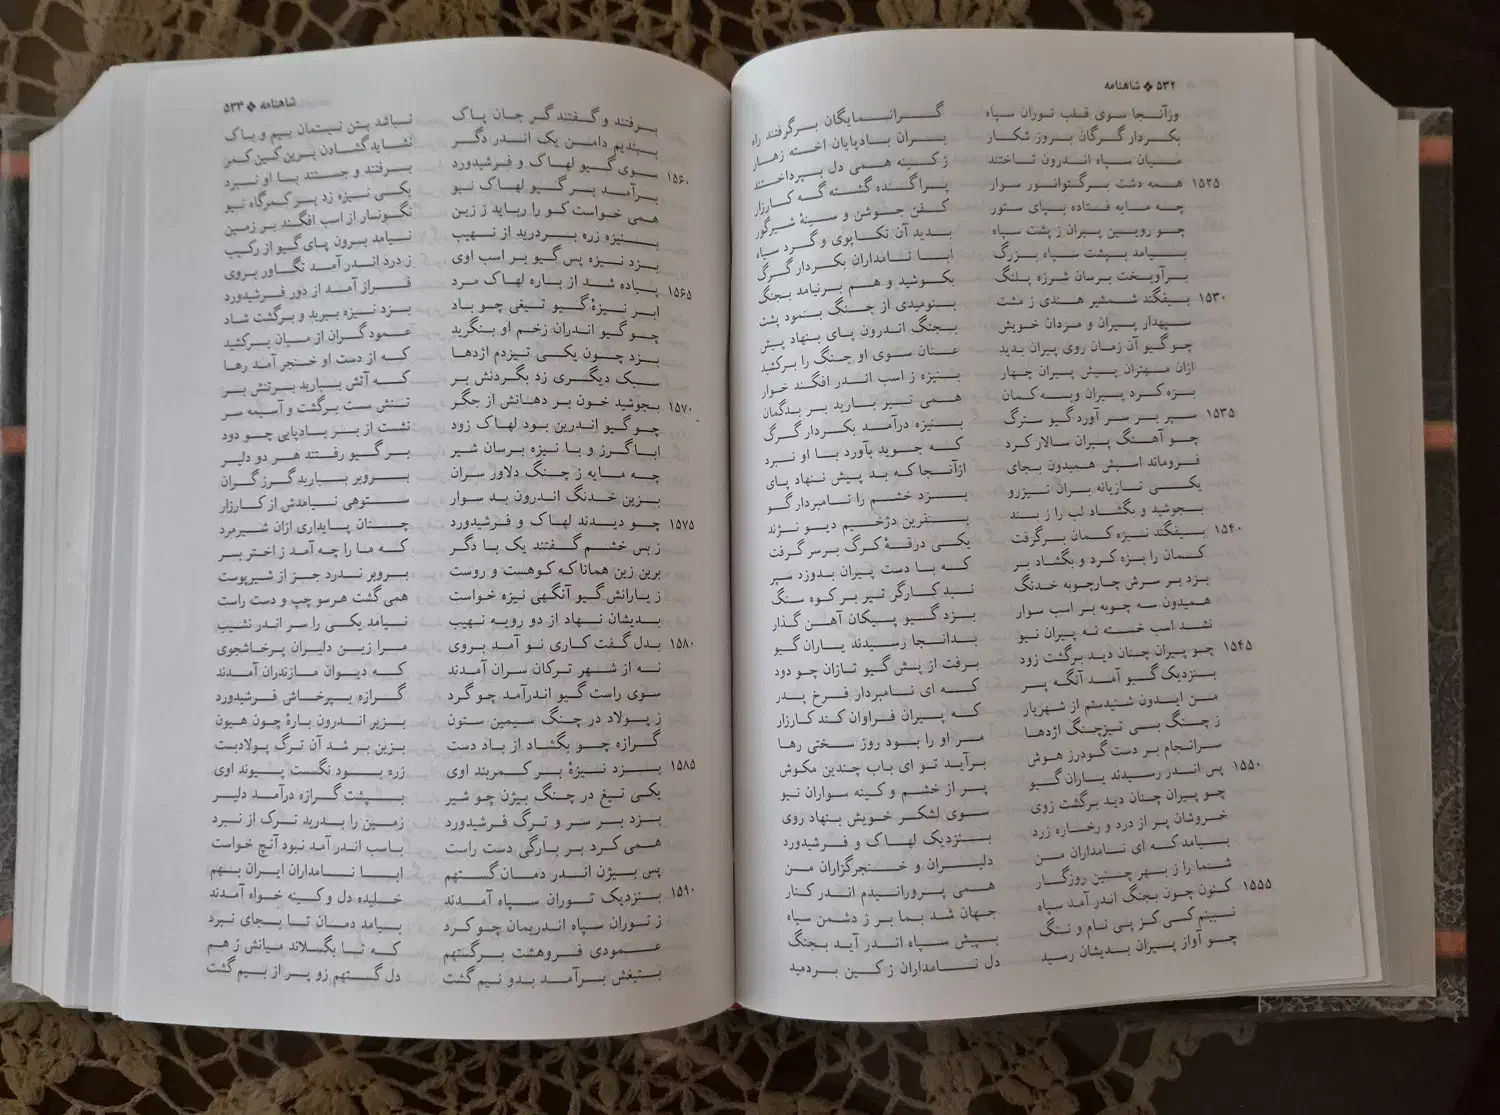 ۵۳۲ ❖ شاهنامه
وزآنجا سوی قلب توران سپاه گرانمایگان برگرفتند راه
بکردار گرگان بروز شکار بران بادپایان اخته زهار
میان سپاه اندرون تاختند ز کینه همی دل بپرداختند
۱۵۲۵ همه دشت برگستوانور سوار پراگنده گشته گه کارزار
چه مایه فتاده بپای ستور کفن جوشن و سینهٔ شیرگور
چو رویین پیران ز پشت سپاه بدید آن تکاپوی و گرد سیاه
بیامد بپشت سپاه بزرگ ابا نامداران بکردار گرگ
برآویخت برسان شرزه پلنگ بکوشید و هم برنیامد بجنگ
۱۵۳۰ بیفگند شمشیر هندی ز مشت بنومیدی از جنگ بنمود پشت
سپهدار پیران و مردان خویش بجنگ اندرون پای بنهاد پیش
چو گیو آن زمان روی پیران بدید عنان سوی او جنگ را برکشید
ازان مهتران پیش پیران چهار بنیزه ز اسب اندر افگند خوار
بزه کرد پیران ویسه کمان همی تیر بارید بر بدگمان
۱۵۳۵ سپر بر سر آورد گیو سترگ بنیزه درآمد بکردار گرگ
چو آهنگ پیران سالار کرد که جوید بآورد با او نبرد
فروماند اسبش همیدون بجای ازآنجا که بد پیش ننهاد پای
یکی تازیانه بران تیزرو بزد خشم را نامبردار گو
بجوشید و بگشاد لب را ز بند بنفرین دژخیم دیو نژند
۱۵۴۰ بیفگند نیزه کمان برگرفت یکی درقهٔ کرگ برسر گرفت
کمان را بزه کرد و بگشاد بر که با دست پیران بدوزد سپر
بزد بر سرش چارچوبه خدنگ نبد کارگر تیر بر کوه سنگ
همیدون سه چوبه بر اسب سوار بزد گیو پیکان آهن گذار
نشد اسب خسته نه پیران نیو بدانجا رسیدند یاران گیو
۱۵۴۵ چو پیران چنان دید برگشت زود برفت از پس گیو تازان چو دود
بنزدیک گیو آمد آنگه پر که ای نامبردار فرخ پدر
من ایدون شنیدستم از شهریار که پیران فراوان کند کارزار
ز چنگ بسی تیزچنگ اژدها مر او را بود روز سختی رها
سرانجام بر دست گودرز هوش برآید تو ای باب چندین مکوش
۱۵۵۰ پس اندر رسیدند یاران گیو پر از خشم و کینه سواران نیو
چو پیران چنان دید برگشت زوی سوی لشکر خویش بنهاد روی
خروشان پر از درد و رخساره زرد بنزدیک لهاک و فرشیدورد
بیامد که ای نامداران من دلیران و خنجرگزاران من
شما را ز بهر چنین روزگار همی پرورانیدم اندر کنار
۱۵۵۵ کنون چون بجنگ اندر آمد سپاه جهان شد بما بر ز دشمن سیاه
نبینم کسی کز پی نام و ننگ بپیش سپاه اندر آید بجنگ
چو آواز پیران بدیشان رسید دل نامداران ز کین بردمید
شاهنامه ❖ ۵۳۳
برفتند و گفتند گر جان پاک نباشد بتن نیستمان بیم و باک
ببندیم دامن یک اندر دگر نشاید گشادن برین کین کمر
۱۵۶۰ سوی گیو لهاک و فرشیدورد برفتند و جستند با او نبرد
برآمد بر گیو لهاک نیو یکی نیزه زد بر کمرگاه نیو
همی خواست کو را رباید ز زین نگونسار از اسب افگند بر زمین
بنیزه زره بردرید از نهیب نیامد برون پای گیو از رکیب
بزد نیزه پس گیو بر اسب اوی ز درد اندر آمد تگاور بروی
۱۵۶۵ پیاده شد از باره لهاک مرد فراز آمد از دور فرشیدورد
ابر نیزهٔ گیو تیغی چو باد بزد نیزه ببرید و برگشت شاد
چو گیو اندران زخم او بنگرید عمود گران از میان برکشید
بزد چون یکی تیزدم اژدها که از دست او خنجر آمد رها
سبک دیگری زد بگردنش بر که آتش ببارید برتنش بر
۱۵۷۰ بجوشید خون بر دهانش از جگر تنش سست برگشت و آسیمه سر
چو گیو اندرین بود لهاک زود نشست از بر بادپایی چو دود
ابا گرز و با نیزه برسان شیر بر گیو رفتند هر دو دلیر
چه مایه ز چنگ دلاور سران بروبر ببارید گرز گران
بزین خدنگ اندرون بد سوار ستوهی نیامدش از کارزار
۱۵۷۵ چو دیدند لهاک و فرشیدورد چنان پایداری ازان شیرمرد
ز بس خشم گفتند یک با دگر که ما را چه آمد ز اختر بسر
برین زین همانا که کوهست و روست بروبر ندرد جز از شیرپوست
ز یارانش گیو آنگهی نیزه خواست همی گشت هرسو چپ و دست راست
بدیشان نهاد از دو رویه نهیب نیامد یکی را سر اندر نشیب
۱۵۸۰ بدل گفت کاری نو آمد بروی مرا زین دلیران پرخاشجوی
نه از شهر ترکان سران آمدند که دیوان مازندران آمدند
سوی راست گیو اندرآمد چو گرد گرازه بپرخاش فرشیدورد
ز پولاد در چنگ سیمین ستون بزیر اندرون بارهٔ چون هیون
گرازه چو بگشاد از باد دست بزین بر شد آن ترگ پولادبست
۱۵۸۵ بزد نیزهٔ بر کمربند اوی زره بود نگسست پیوند اوی
یکی تیغ در چنگ بیژن چو شیر بپشت گرازه درآمد دلیر
بزد بر سر و ترگ فرشیدورد زمین را بدرید ترک از نبرد
همی کرد بر بارگی دست راست باسب اندر آمد نبود آنچ خواست
پس بیژن اندر دمان گستهم ابا نامداران ایران بهم
۱۵۹۰ بنزدیک توران سپاه آمدند خلیده دل و کینه خواه آمدند
ز توران سپاه اندریمان چو گرد بیامد دمان تا بجای نبرد
عمودی فروهشت برگستهم که تا بگسلاند میانش ز هم
بتیغش برآمد بدو نیم گشت دل گستهم زو پر از بیم گشت